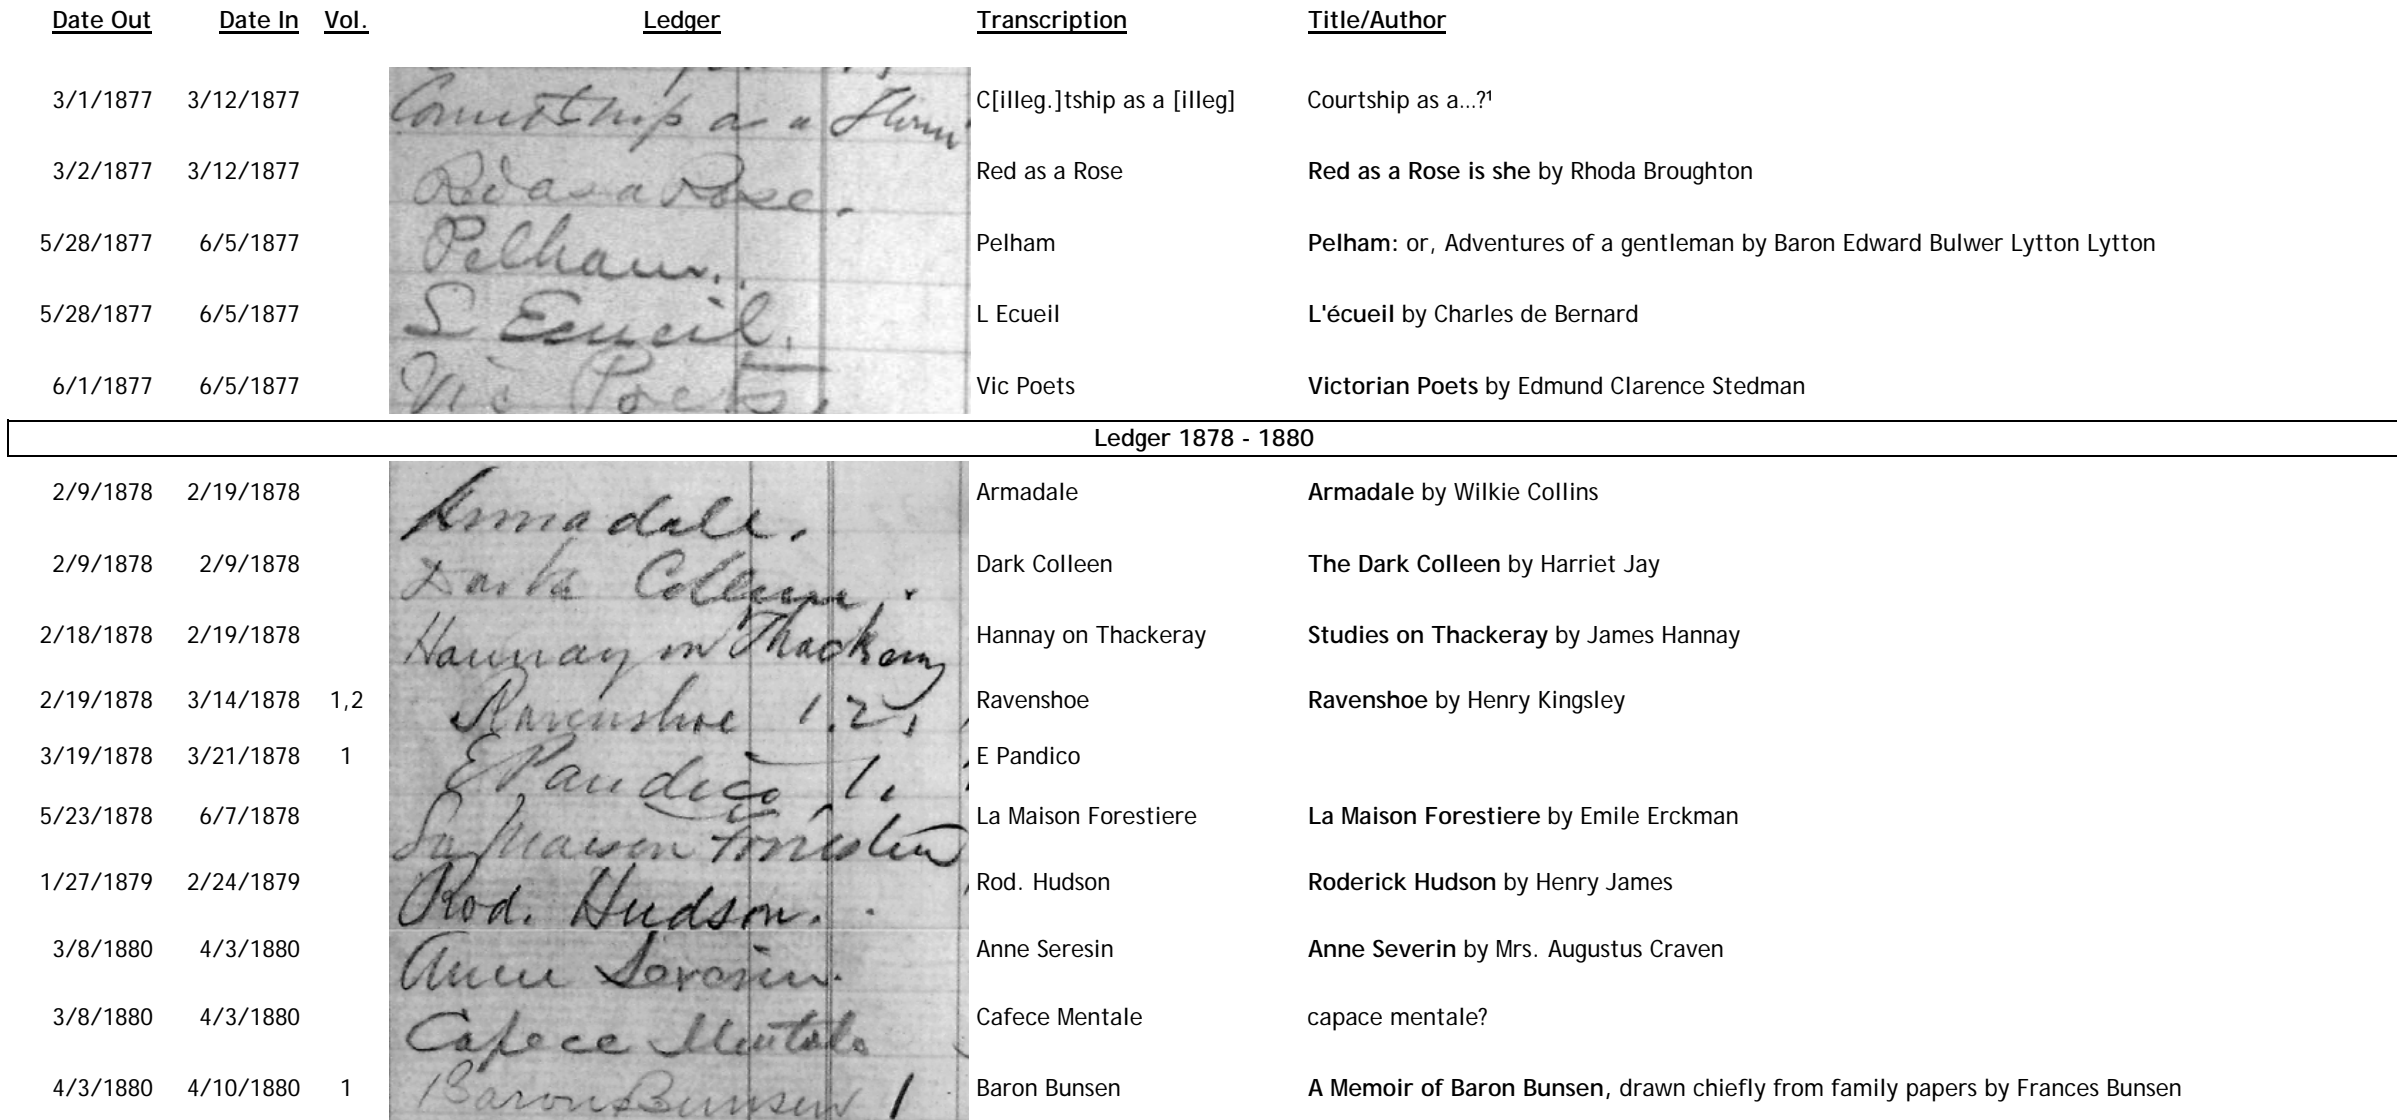 Date Out Date In Vol. Ledger Transcription Title/Author
3/1/1877 3/12/1877 as a C[illeg.]tship as a [illeg] Courtship as a...?¹
3/2/1877 3/12/1877 Red as a Rose. Red as a Rose Red as a Rose is she by Rhoda Broughton
5/28/1877 6/5/1877 Pelham. Pelham Pelham: or, Adventures of a gentleman by Baron Edward Bulwer Lytton Lytton
5/28/1877 6/5/1877 L Ecueil. L Ecueil L'écueil by Charles de Bernard
6/1/1877 6/5/1877 Vic Poets. Vic Poets Victorian Poets by Edmund Clarence Stedman
Ledger 1878 - 1880
2/9/1878 2/19/1878 Armadale. Armadale Armadale by Wilkie Collins
2/9/1878 2/9/1878 Dark Colleen. Dark Colleen The Dark Colleen by Harriet Jay
2/18/1878 2/19/1878 Hannay on Thackeray Hannay on Thackeray Studies on Thackeray by James Hannay
2/19/1878 3/14/1878 1,2 Ravenshoe 1.2, Ravenshoe Ravenshoe by Henry Kingsley
3/19/1878 3/21/1878 1 E Pandico 1. E Pandico
5/23/1878 6/7/1878 La Maison La Maison Forestiere La Maison Forestiere by Emile Erckman
1/27/1879 2/24/1879 Rod. Hudson. Rod. Hudson Roderick Hudson by Henry James
3/8/1880 4/3/1880 Anne Seresin. Anne Seresin Anne Severin by Mrs. Augustus Craven
3/8/1880 4/3/1880 Cafece Mentale Cafece Mentale capace mentale?
4/3/1880 4/10/1880 1 Baron Bunsen 1 Baron Bunsen A Memoir of Baron Bunsen, drawn chiefly from family papers by Frances Bunsen